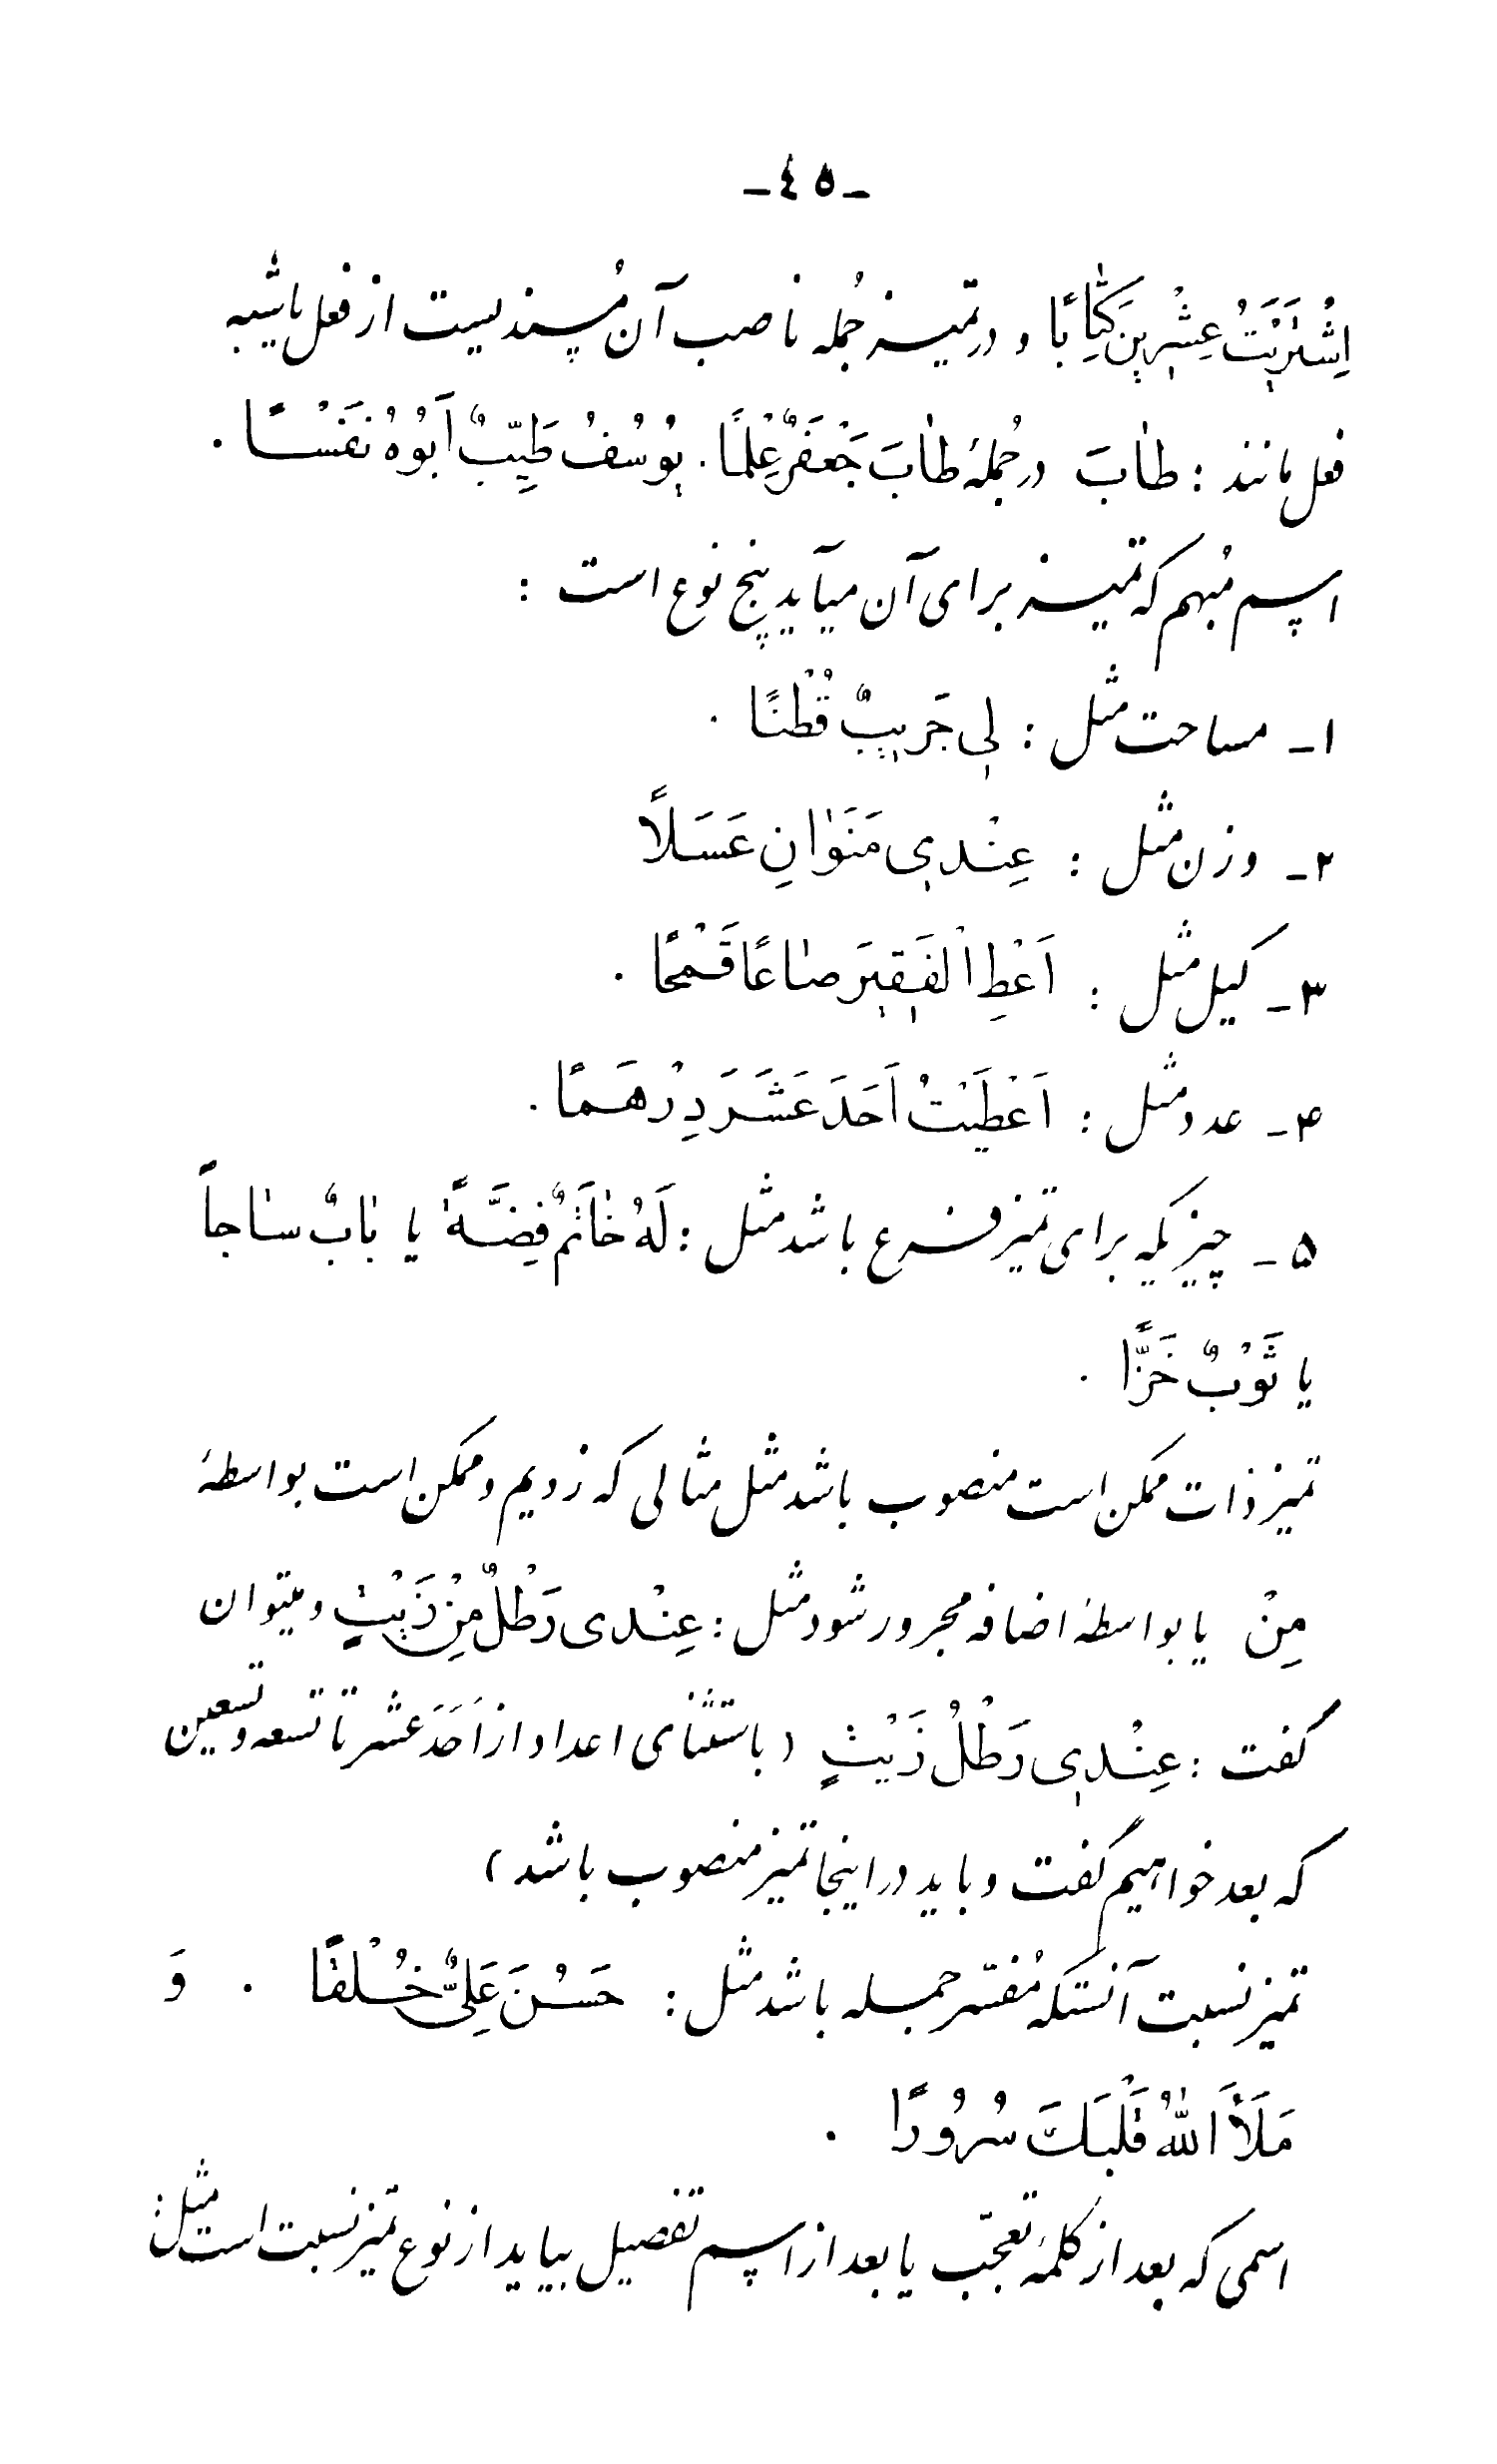 -٤٥-
اِشْتَرَیْتُ عِشْرِینَ کِتٰابًا و در تمیز جُمله ناصب آن مُسندیست از فعل یا شبیه
فعل مانند : طٰابَ در جُملهٔ طٰابَ جَعْفَرٌ عِلْمًا . یُوسُفُ طَیِّبٌ اَبُوهُ نَفْسًا .
اسم مُبهم که تمیز برای آن میآید پنج نوع است :
۱- مساحت مثل : لِی جَرِیبٌ قُطْنًا .
۲- وزن مثل : عِنْدِی مَنَوٰانِ عَسَلاً
۳- کیل مثل : اَعْطِ الْفَقِیرَ صٰاعًا قَمْحًا .
۴- عدد مثل : اَعْطَیْتُ اَحَدَ عَشَرَ دِرْهَمًا .
۵- چیزیکه برای تمیز فرع باشد مثل : لَهُ خٰاتَمٌ فِضَّةً یا بٰابٌ سٰاجاً
یا ثَوْبٌ خَزًّا .
تمیز ذات ممکن است منصوب باشد مثل مثالی که زدیم و ممکن است بواسطهٔ
مِنْ یا بواسطهٔ اضافه مجرور شود مثل : عِنْدی رَطْلٌ مِنْ زَیْتٍ و میتوان
گفت : عِنْدِی رَطْلُ زَیْتٍ ( باستثنای اعداد از اَحَدَ عشر تا تسعه و تسعین
که بعد خواهیم گفت و باید در اینجا تمیز منصوب باشد )
تمیز نسبت آنستکه مُفسّر جمله باشد مثل : حَسُنَ عَلِیٌّ خُلْقًا . وَ
مَلَأَ اللّٰهُ قَلْبَکَ سُرُورًا .
اسمی که بعد از کلمهٔ تعجّب یا بعد از اسم تفصیل بیاید از نوع تمیز نسبت است مثل :